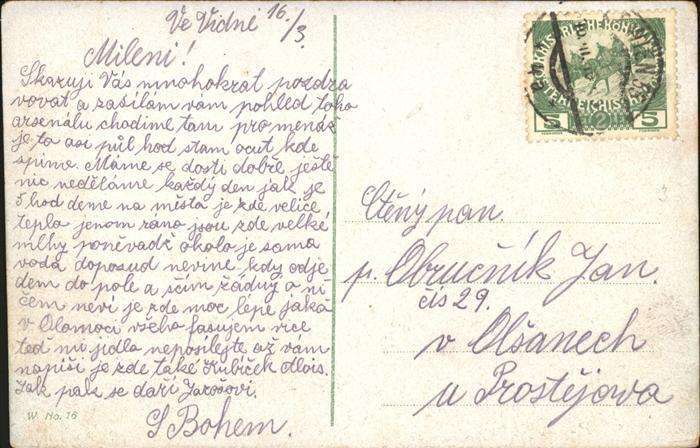 Ve Vídni 16./3.
Milení!
Skazuji Vás mnohokrat pozdra
vovat a zasílám vam pohled toho
arsenálu chodime tam pro menáž
je to asi půl hod stam ocut kde
spime. Máme se dosti dobře ještě
nic neděláme každý den jak je
5 hod deme na místa je zde velice
teplo jenom ráno jsou zde velké
mlhy poněvadč okolo je sama
voda doposud nevíme kdy odje
dem do pole a sčim žádný o ni
čem neví je zde moc lepe jak
v Olomoci všeho fasujem vice
teď mi jidla neposilejte až vám
napiši je zde také Kubíček Alois.
Jak pak se daří Jarošovi.
S Bohem.
W. No. 76
KAIS. KÖN. ÖSTERREICHISCHE
5 5
WIEN
Ctěný pan.
p. Obručník Jan.
čis 29.
v Olšanech
u Prostějova